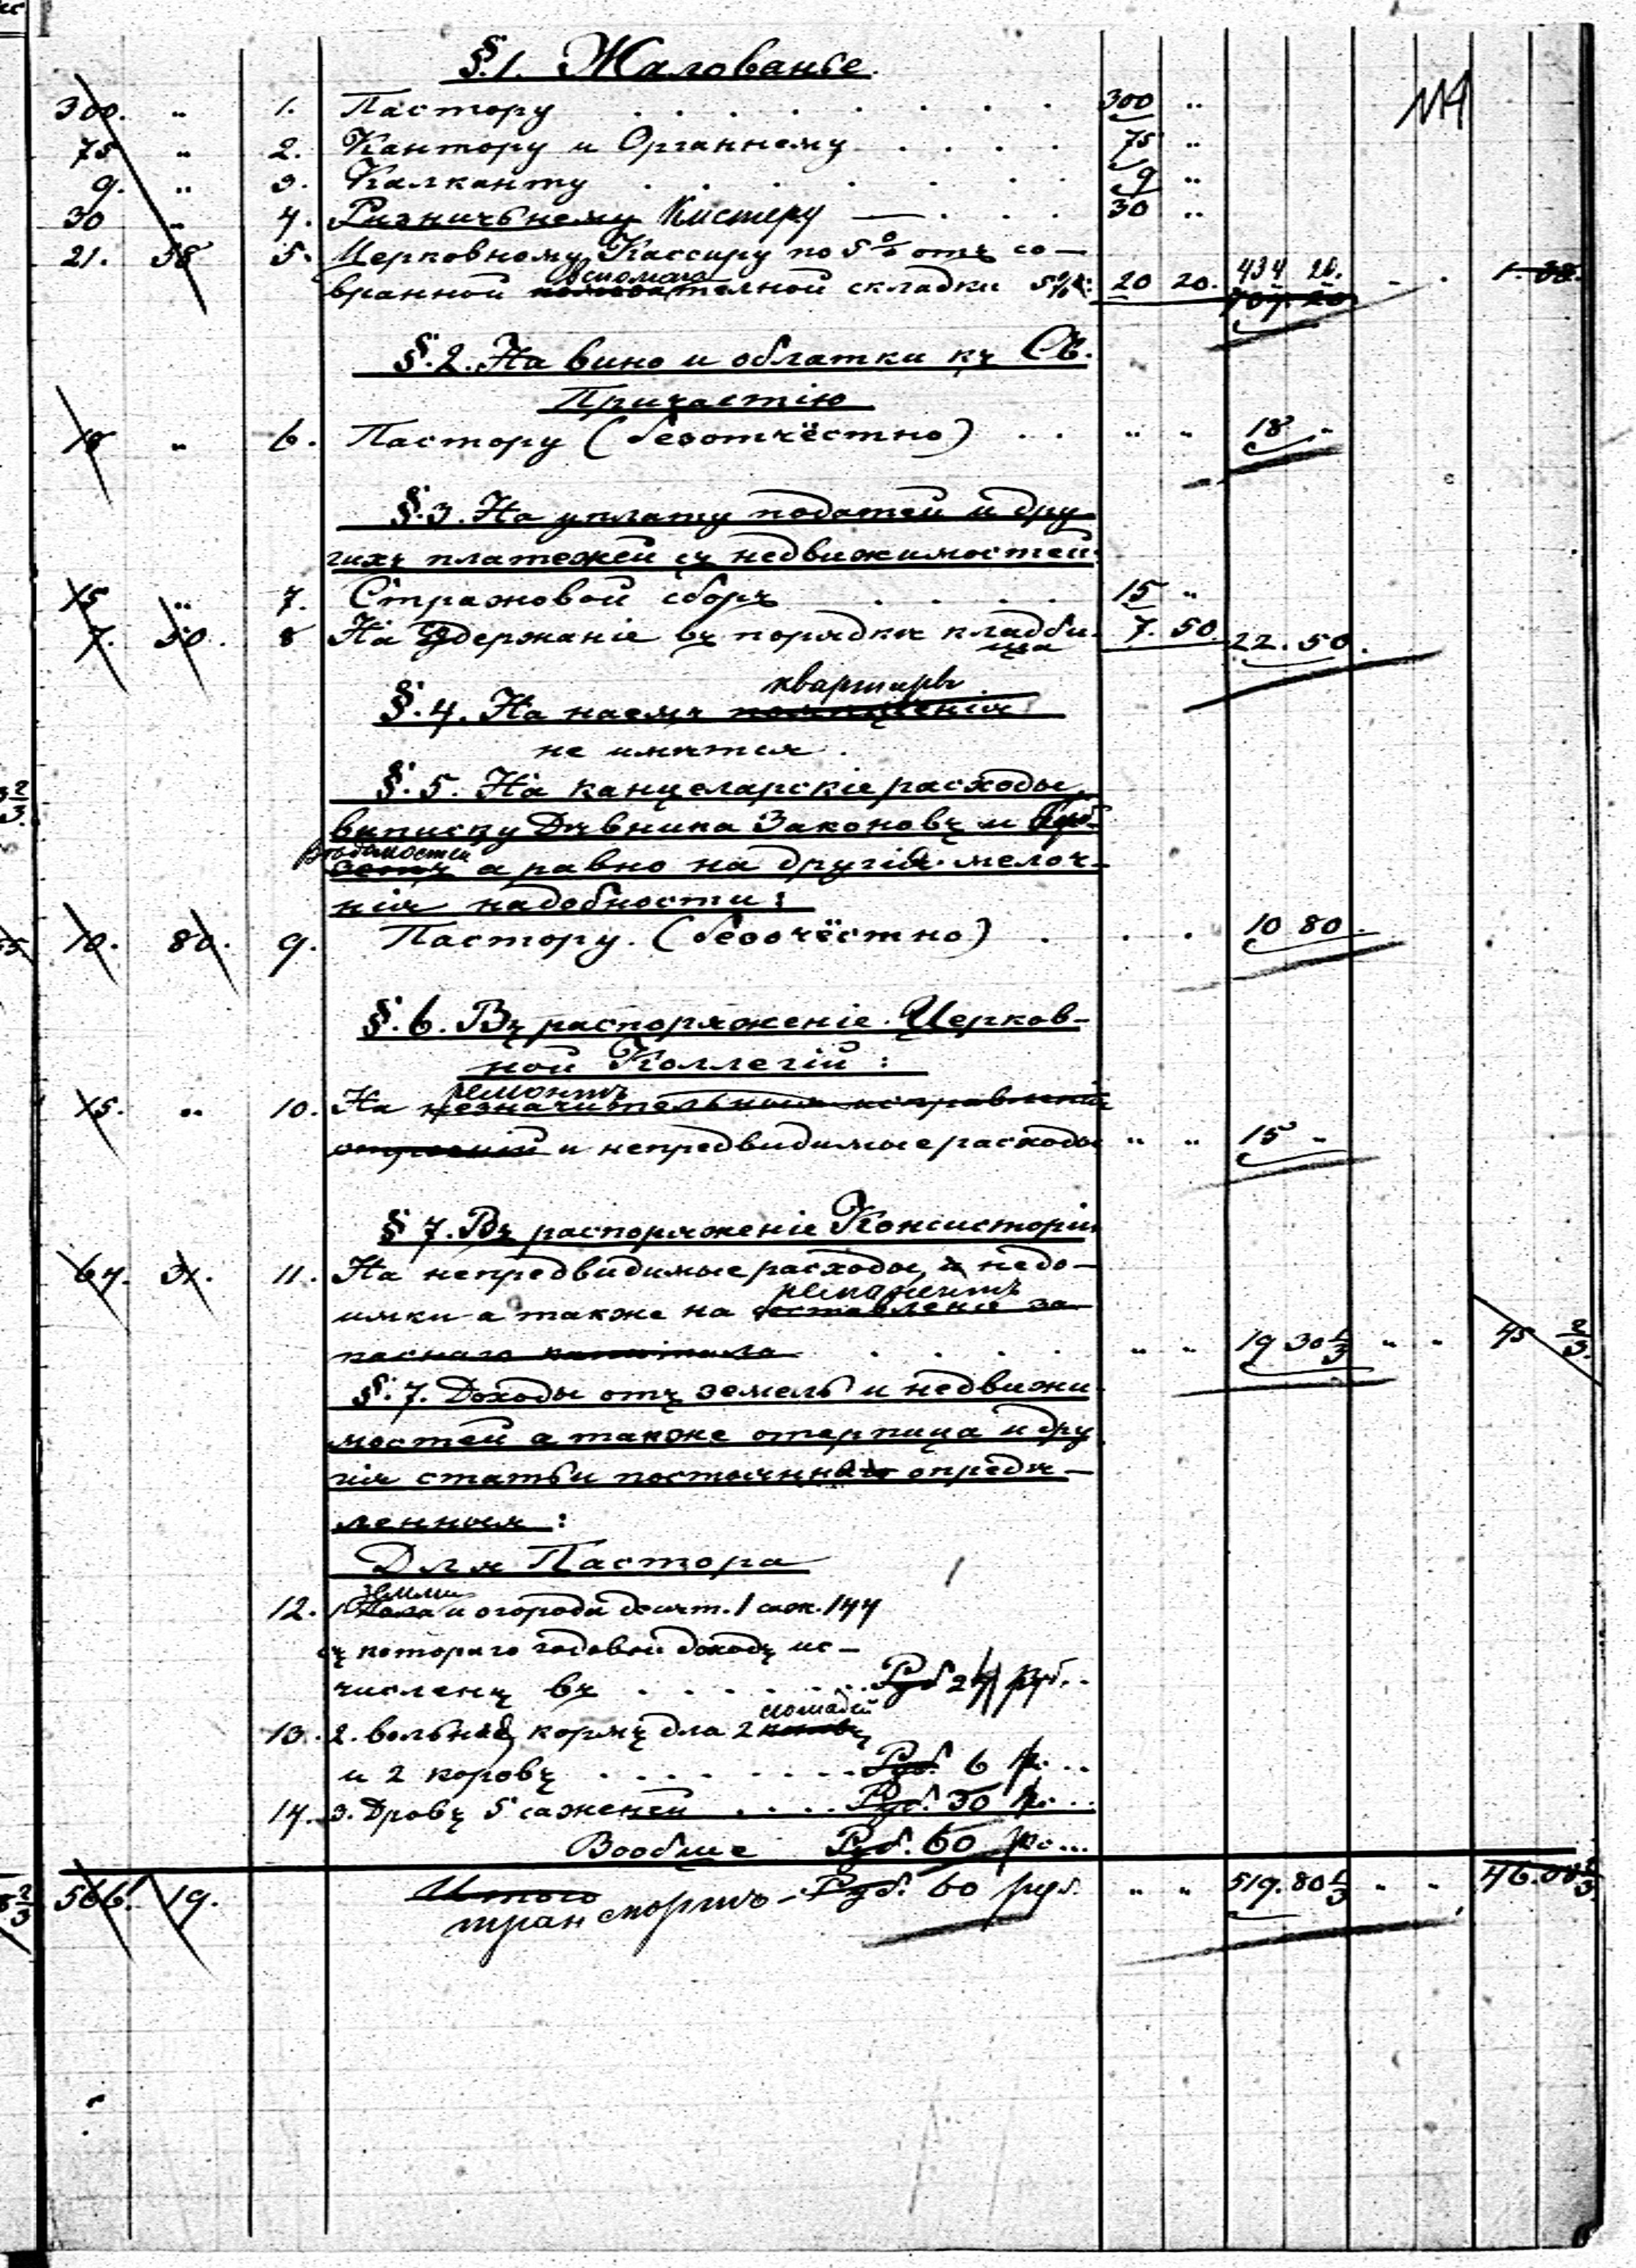 §.1. Жалованье.
300. „ 1. Пастору . . . . . . . . 300 „ 114
75 „ 2. Кантору и Органному . . . . 75 „
9. „ 3. Калканту . . . . . . . 9 „
30 „ 4. Ризничьнему Кистеру — . . . 30 „
21. 58 5. Церковному Кассиру по 5 % отъ со- 434 20.
вспомога
бранной тельной складки 5% 20 20. 707. 20 . . 1. 38.
§.2. На вино и облатки къ Св.
Причастію
18 „ 6. Пастору (безотчётно) . . „ „ 18 „
§.3. На уплату податей и дру
гихъ платежей съ недвижимостей.
15 „ 7. Страховой сборъ . . . . 15 „
7. 50. 8 На удержаніе въ порядкѣ кладби- 7. 50 22. 50.
ща
квартиры
§.4. На наемъ помѣщенія
не имѣется.
§.5. На канцеларскіе расходы,
выписку Дневника Законовъ и Губ.
вѣдомостей
а равно на другія мелоч-
нія надобности:
10. 80. 9. Пастору. (безочётно) . . . 10 80.
§.6. Въ распоряженіе Церков-
ной Коллегіи:
ремонтъ
15. „ 10. На незначительныя исправленія
строеній и непредвидимые расходы „ „ 15 „
§ 7. Въ распоряженіе Консисторіи
64. 31. 11. На непредвидимые расходы, и недо-
ремонентъ
имки а также на составленіе за-
паснаго капитала . . . . „ „ 19 30 2/3 „ „ 45 2/3
§.7. Доходы отъ земель и недвижи
мостей а также отерпица и дру
гія статьи постоянна опредѣ-
ленныя:
Для Пастора
земли
12. 1 Поля и огорода десят. 1 саж. 144
съ котораго годовой доходъ ис-
численъ въ . . . . . . . Руб 24 руб. .
лошадей
13. 2. вольный кормъ для 2 коней
и 2 коровъ . . . . . . . . Руб. 6 р. . .
14. 3. Дровъ 5 саженей . . . . Руб. 30 р. . .
Вообще Руб. 60 р. ...
566. 19. Итого Руб. 60 руб. „ „ 519. 80 2/3 „ „ 46.
транспортъ